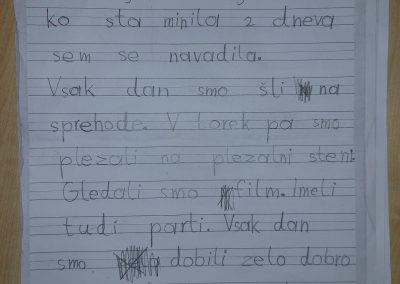 ko sta minila 2 dneva
sem se navadila.
Vsak dan smo šli na
sprehode. V torek pa smo
plezali na plezalni steni.
Gledali smo film. Imeli
tudi parti. Vsak dan
smo dobili zelo dobro